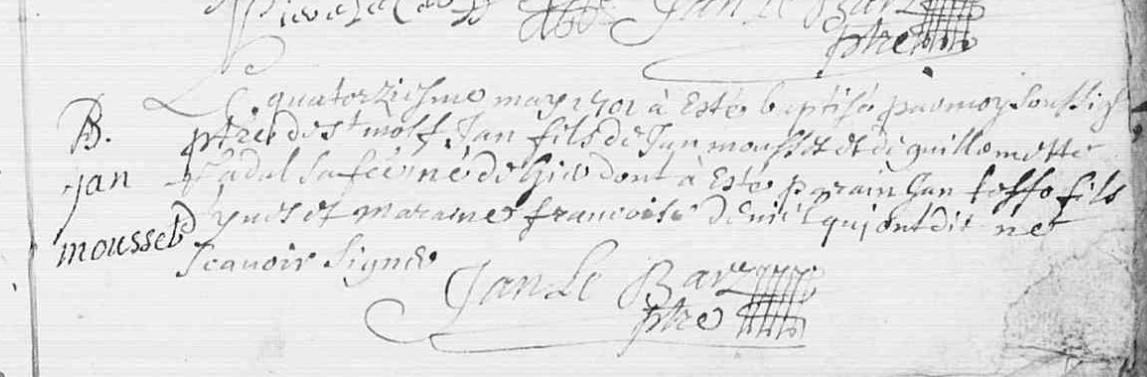 Jan Le Barz
ptre
B.
jan
mousset
Le quatorziesme may 1701 à Esté baptisé par moy soussigé
ptre de st molf, Jan fils de Jan mousset et de guillemette
sa feme né de hier dont à Esté parain Jan fils
yves et maraine francoise qui ont dit ne
scavoir signer
Jan Le Barz
ptre